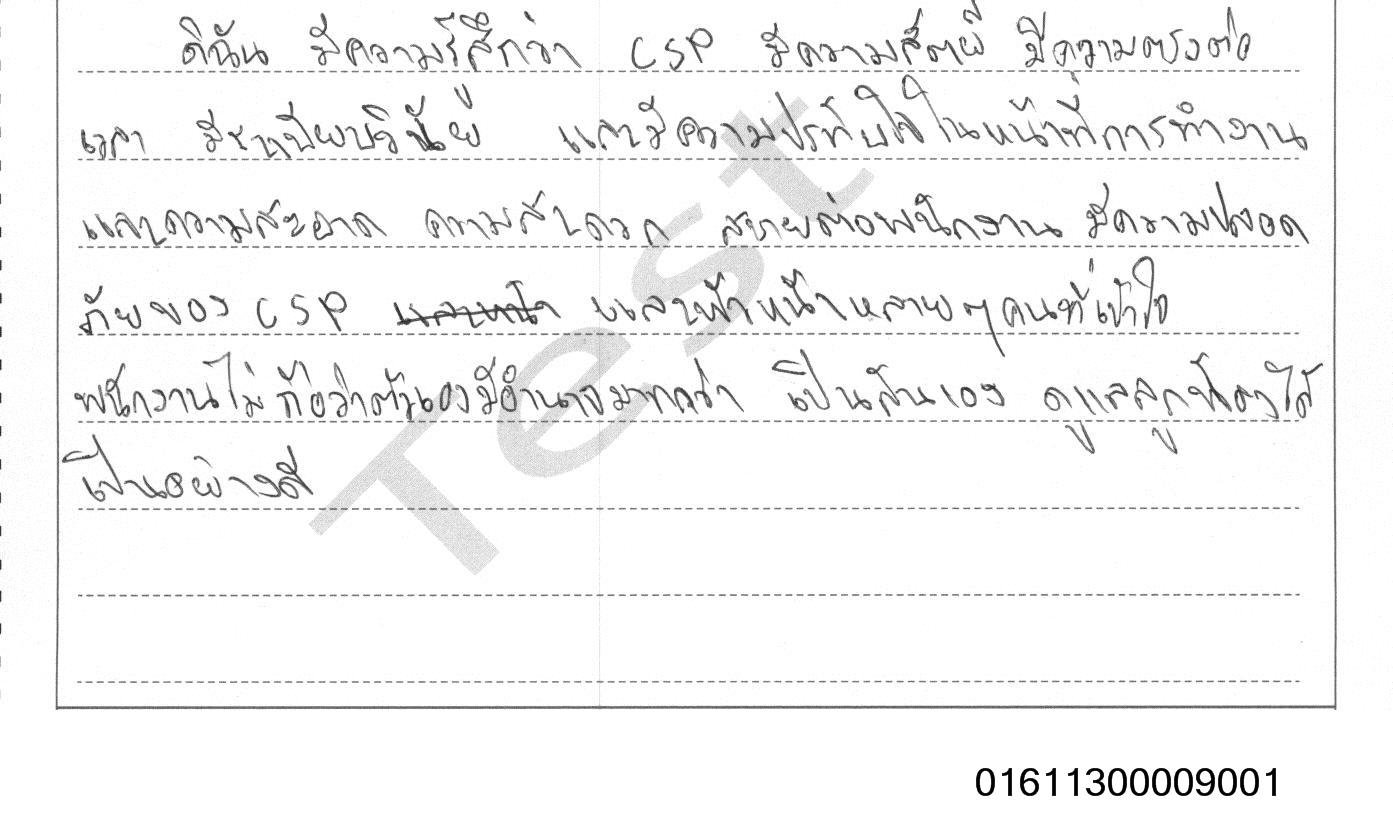 ดิฉัน มีความรู้สึกว่า CSP มีความส์ตย์ มีความตรงต่อ
เวลา มีระเบียบวินัย และมีความประทับใจในหน้าที่การทำงาน
และความสะอาด ความสะดวก สบายต่อพนักงาน มีความปลอด
ภัยของ CSP และหัวหน้าหลายๆคนที่เข้าใจ
พนักงานไม่ถือว่าตัวเองมีอำนาจมากกว่า เป็นกันเอง ดูแลลูกน้องได้
เป็นอย่างดี
Test
01611300009001